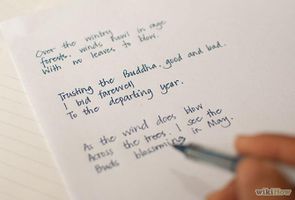 Over the wintry
forests, winds howl in rage
With no leaves to blow.
Trusting the Buddha, good and bad,
I bid farewell
To the departing year.
As the wind does blow
Across the trees, I see the
Buds blossoming in May.
wikiHow